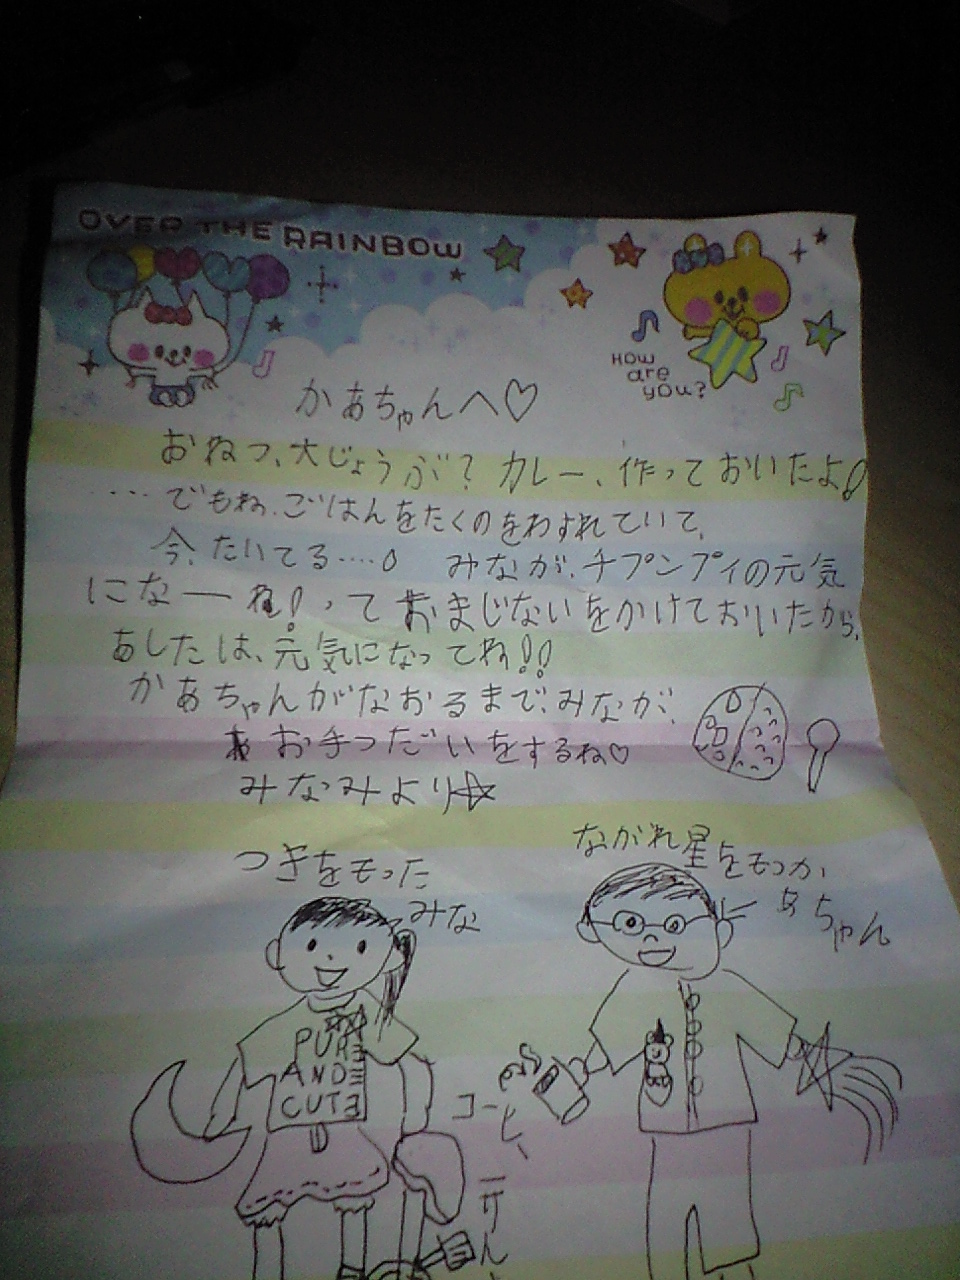 OVER THE RAINBOW
HOW
are
you?
かあちゃんへ♡
おねつ、大じょうぶ？カレー、作っておいたよ!
....でもね、ごはんをたくのをわすれていて、
今、たいてる....! みなが、チプンプィの元気
になーね!って おまじないをかけておいたから、
あしたは、元気になってね!!
かあちゃんがなおるまで、みなが、
お手つだいをするね♡
みなみより☆
つきをもった
みな
ながれ星をもつか
あちゃん
PURE
AND
CUTE
コーヒー